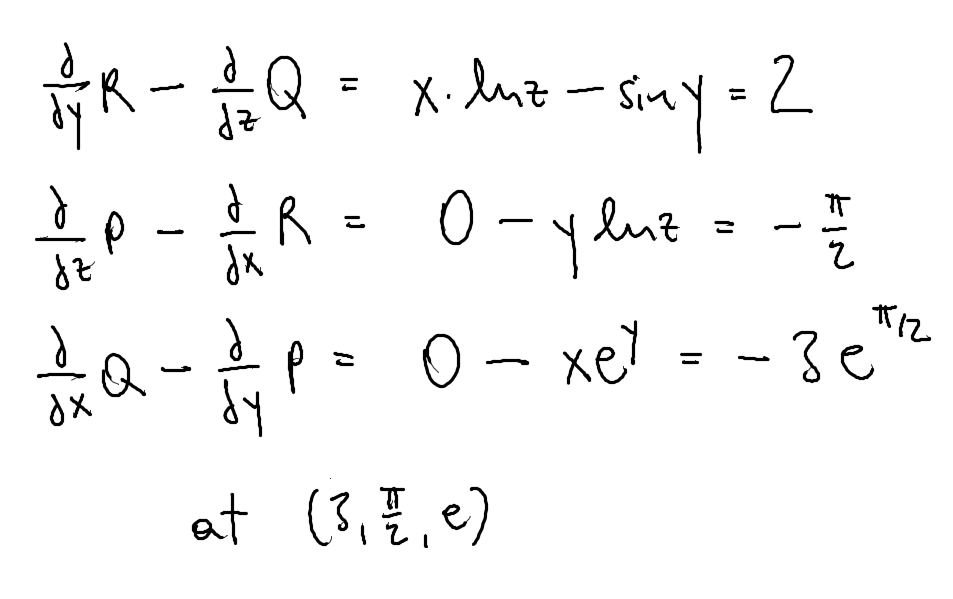 ∂/∂y R − ∂/∂z Q = x · ln z − sin y = 2
∂/∂z P − ∂/∂x R = 0 − y ln z = − π/2
∂/∂x Q − ∂/∂y P = 0 − xe^y = − 3 e^{π/2}
at (3, π/2, e)